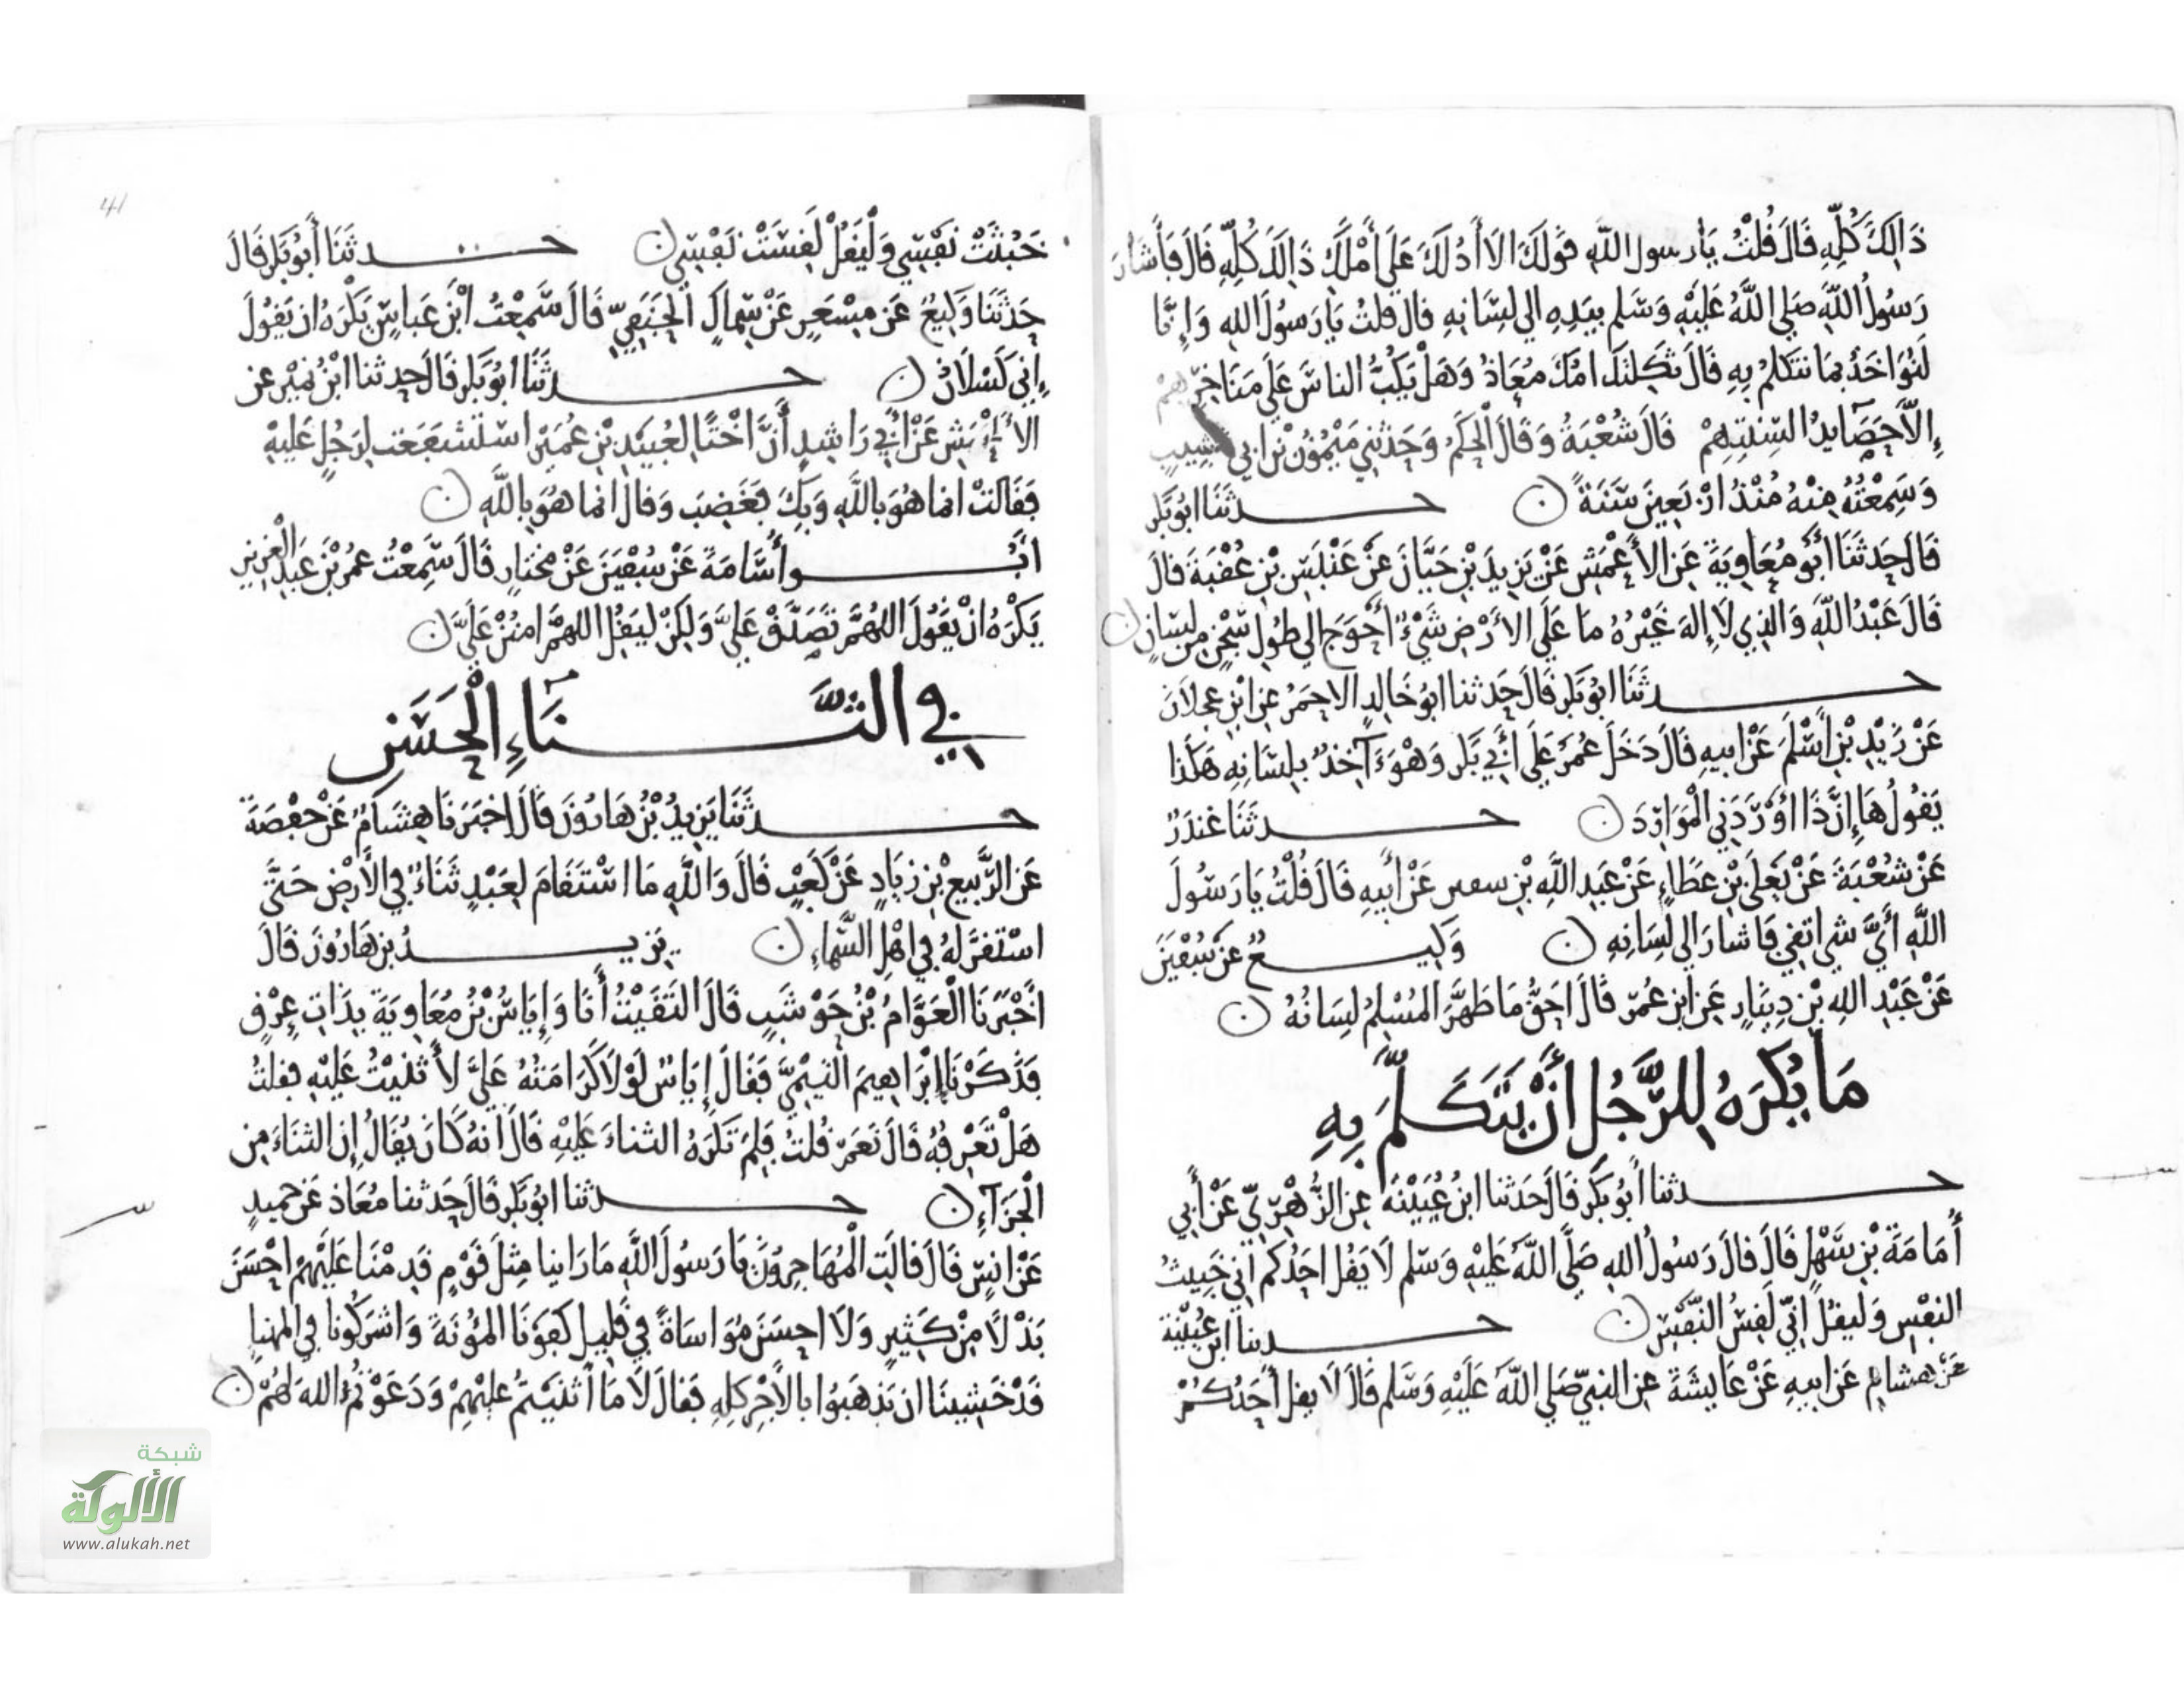 ذَالِكَ كُلِّهِ قَالَ قُلْتُ يَا رسول اللهِ قولك الا أدُلكَ عَلَى أمْلَكِ ذَالِكَ كُلِّهِ قَالَ فَأشَارَ
رَسُولُ اللهِ صَلى اللهُ عَلَيْهِ وَسَلم بِيَدِهِ الى لِسَانِهِ قال قلتُ يَا رَسُولَ الله وَإِنَّا
لَنُوَاخَذُ بمَا نتكلمُ بِهِ قَالَ ثكِلتكَ امكَ مُعَاذُ وَهَلْ يَكُبُّ الناسَ عَلَى مَنَاخِرِهِمْ
إِلَّا حَصَايدُ السِنتِهِمْ قَالَ شُعْبَةُ وَقَالَ الْحَكَمُ وَحَدثَنِي مَيْمُونُ بْنُ ابي شبيبٍ
وَسَمِعْتُهُ مِنْهُ مُنْذُ ارْبَعِينَ سَنَةً ن حدثَنَا ابُو بَكر
قَالَ حَدثَنَا أبُو مُعَاوِيَةَ عَنِ الأعْمَشِ عَنْ يَزِيدَ بْنِ حَيَّانَ عَنْ عَنْبَسِ بْنِ عُقْبَةَ قالَ
قَالَ عَبْدُ اللهِ وَالذِي لَا إلهَ غَيْرُهُ مَا عَلَى الأرْضِ شَيْءٌ أحْوَج الى طُولِ سَجْنٍ مِن لِسَانٍ ن
حدثَنَا ابُو بَكر قَالَ حَدثنا ابُو خَالِدٍ الاحمَرُ عن ابْنِ عجلانَ
عَنْ زَيْدِ بْنِ أسْلَمَ عَنْ ابيهِ قَالَ دَخَلَ عُمَرُ عَلَى أبِي بَكر وَهْوَ آخِذٌ بِلِسَانِهِ هَكَذَا
يَقُولُ هَا إِنَّ ذَا أوْرَدَنِي الْمَوَارِدَ ن حدثَنَا غندَرٌ
عَنْ شُعْبَةَ عَنْ يَعْلَى بْنِ عَطَاءٍ عَنْ عَبدِ اللهِ بْنِ سفين عَنْ أبيهِ قَالَ قُلْتُ يَا رَسُولَ
اللهِ أيَّ شي اتقي فَاشارَ الى لِسَانِهِ ن وَكيعٌ عَنْ سُفْيَنَ
عَنْ عَبْدِ اللهِ بْنِ دِينَارٍ عَنِ ابْنِ عُمَر قَالَ احَقُّ مَا طَهَّرَ المُسْلِمُ لِسَانُهُ ن
مَا يُكرَهُ لِلرَّجُلِ أنْ يَتَكلمَ بِهِ
حدثنا أبُو بَكر قَالَ حَدثنا ابنُ عُيَيْنَةَ عَنِ الزُّهْرِيِّ عَنْ أبِي
أُمَامَةَ بْنِ سَهْلٍ قَالَ قَالَ رَسُولُ الله صَلَّى اللهُ عَلَيْهِ وَسَلم لَا يَقُل احَدُكم اني خَبِيثُ
النفْسِ وَليقُلْ اِنِّي لَقِسُ النَّفْسِ ن حدثنا ابن عُيَيْنة
عَنْ هشام عَن ابيهِ عَنْ عَايشَةَ عن النبيّ صَلى اللهُ عَلَيْهِ وَسَلم قَالَ لَا يقل أحَدُكُمْ
خَبُثَتْ نَفْسِي وَلْيَقُلْ لَقِسَتْ نَفْسِي ن حدثَنَا أبُو بَكر قَالَ
حَدثَنَا وَكِيعٌ عَن مِسْعَرٍ عَنْ سِماكٍ الْحَنَفِيّ قَالَ سَمِعْتُ ابْنَ عَباسٍ يَكْرَهُ ان يَقُولَ
إنِي كَسْلَانُ ن حدثَنَا ابُو بَكر قَالَ حدثنا ابْنُ نُمَيْر عن
الأعْمَشِ عَنْ أبِي رَاشِدٍ أنَّ اخْتًا لعُبَيْدِ بْنِ عُمَيْرٍ اسْتشفَعَت لرَجُلٍ عَلَيْهِ
فقَالَتْ انما هُوَ بِاللهِ وَبِكَ فَغَضِبَ وَقالَ انما هُوَ بِاللهِ ن
ابُو أُسَامَةَ عَنْ سُفْيَنَ عَنْ مختارٍ قَالَ سَمِعْتُ عمُرَ بْنَ عَبْدِ الْعَزِيزِ
يَكْرَهُ انْ يَقُولَ اللهُمَّ تَصَدَّقْ عَلَيَّ وَلكِنْ لِيَقُلِ اللهُمَّ امنُنْ عَلَيَّ ن
في الثَّنَاءِ الْحَسَنِ
حدثَنَا يَزِيدُ بْنُ هَارُونَ قَالَ اخبَرَنَا هِشَامٌ عَنْ حَفْصَةَ
عَنِ الرَّبِيعِ بْنِ زِيَادٍ عَنْ كَعْبٍ قَالَ وَاللهِ مَا اسْتَقَامَ لِعَبْدٍ ثَنَاءٌ في الأرْضِ حَتَّى
اسْتقرَّ لهُ في اهْلِ السَّمَاءِ ن يزيدُ بن هَارُونَ قَالَ
اخْبَرَنَا الْعَوَّامُ بْنُ حَوْشَبٍ قَالَ التَقَيْتُ أنَا وَإيَاسُ بْنُ مُعَاوِيَةَ بِذَاتِ عِرْقٍ
فَذَكَرْنَا إبْرَاهِيمَ التيْمِيَّ فَقَالَ إيَاسُ لوْلَا كَرَامَتُهُ عَلَيَّ لأثنيْتُ عَلَيْهِ فقلتُ
هَلْ تَعْرِفُهُ قَالَ نَعَمْ قُلتُ فَلِمَ تَكرَهُ الثناءَ عَلَيْهِ قَالَ انهُ كَانَ يُقَالُ إن الثنَاءَ مِن
الْجَزَآءِ ن حدثنا ابُو بَكر قَالَ حَدثنا مُعَاذ عَن حميدٍ
عَنْ انسٍ قَالَ قالَتِ الْمُهَاجِرُونَ يَا رَسُولَ اللهِ مَا رَاينا مِثلَ قَوْمٍ قَدِمْنَا عَلَيْهِمْ احْسَنَ
بَذْلًا مِنْ كَثِيرٍ وَلَا احسَنَ مُوَاسَاةً فِي قَلِيلٍ كفَوْنَا المُؤنَةَ وَاشرَكُونا في المهنإ
قَدْ خَشِينَا ان يَذهَبُوا بالأجْرِ كلِهِ فقالَ لَا مَا أثنَيْتُمْ عليْهِمْ وَدَعَوْتُمُ الله لهُمْ ن
41
شبكة
الألوكة
www.alukah.net